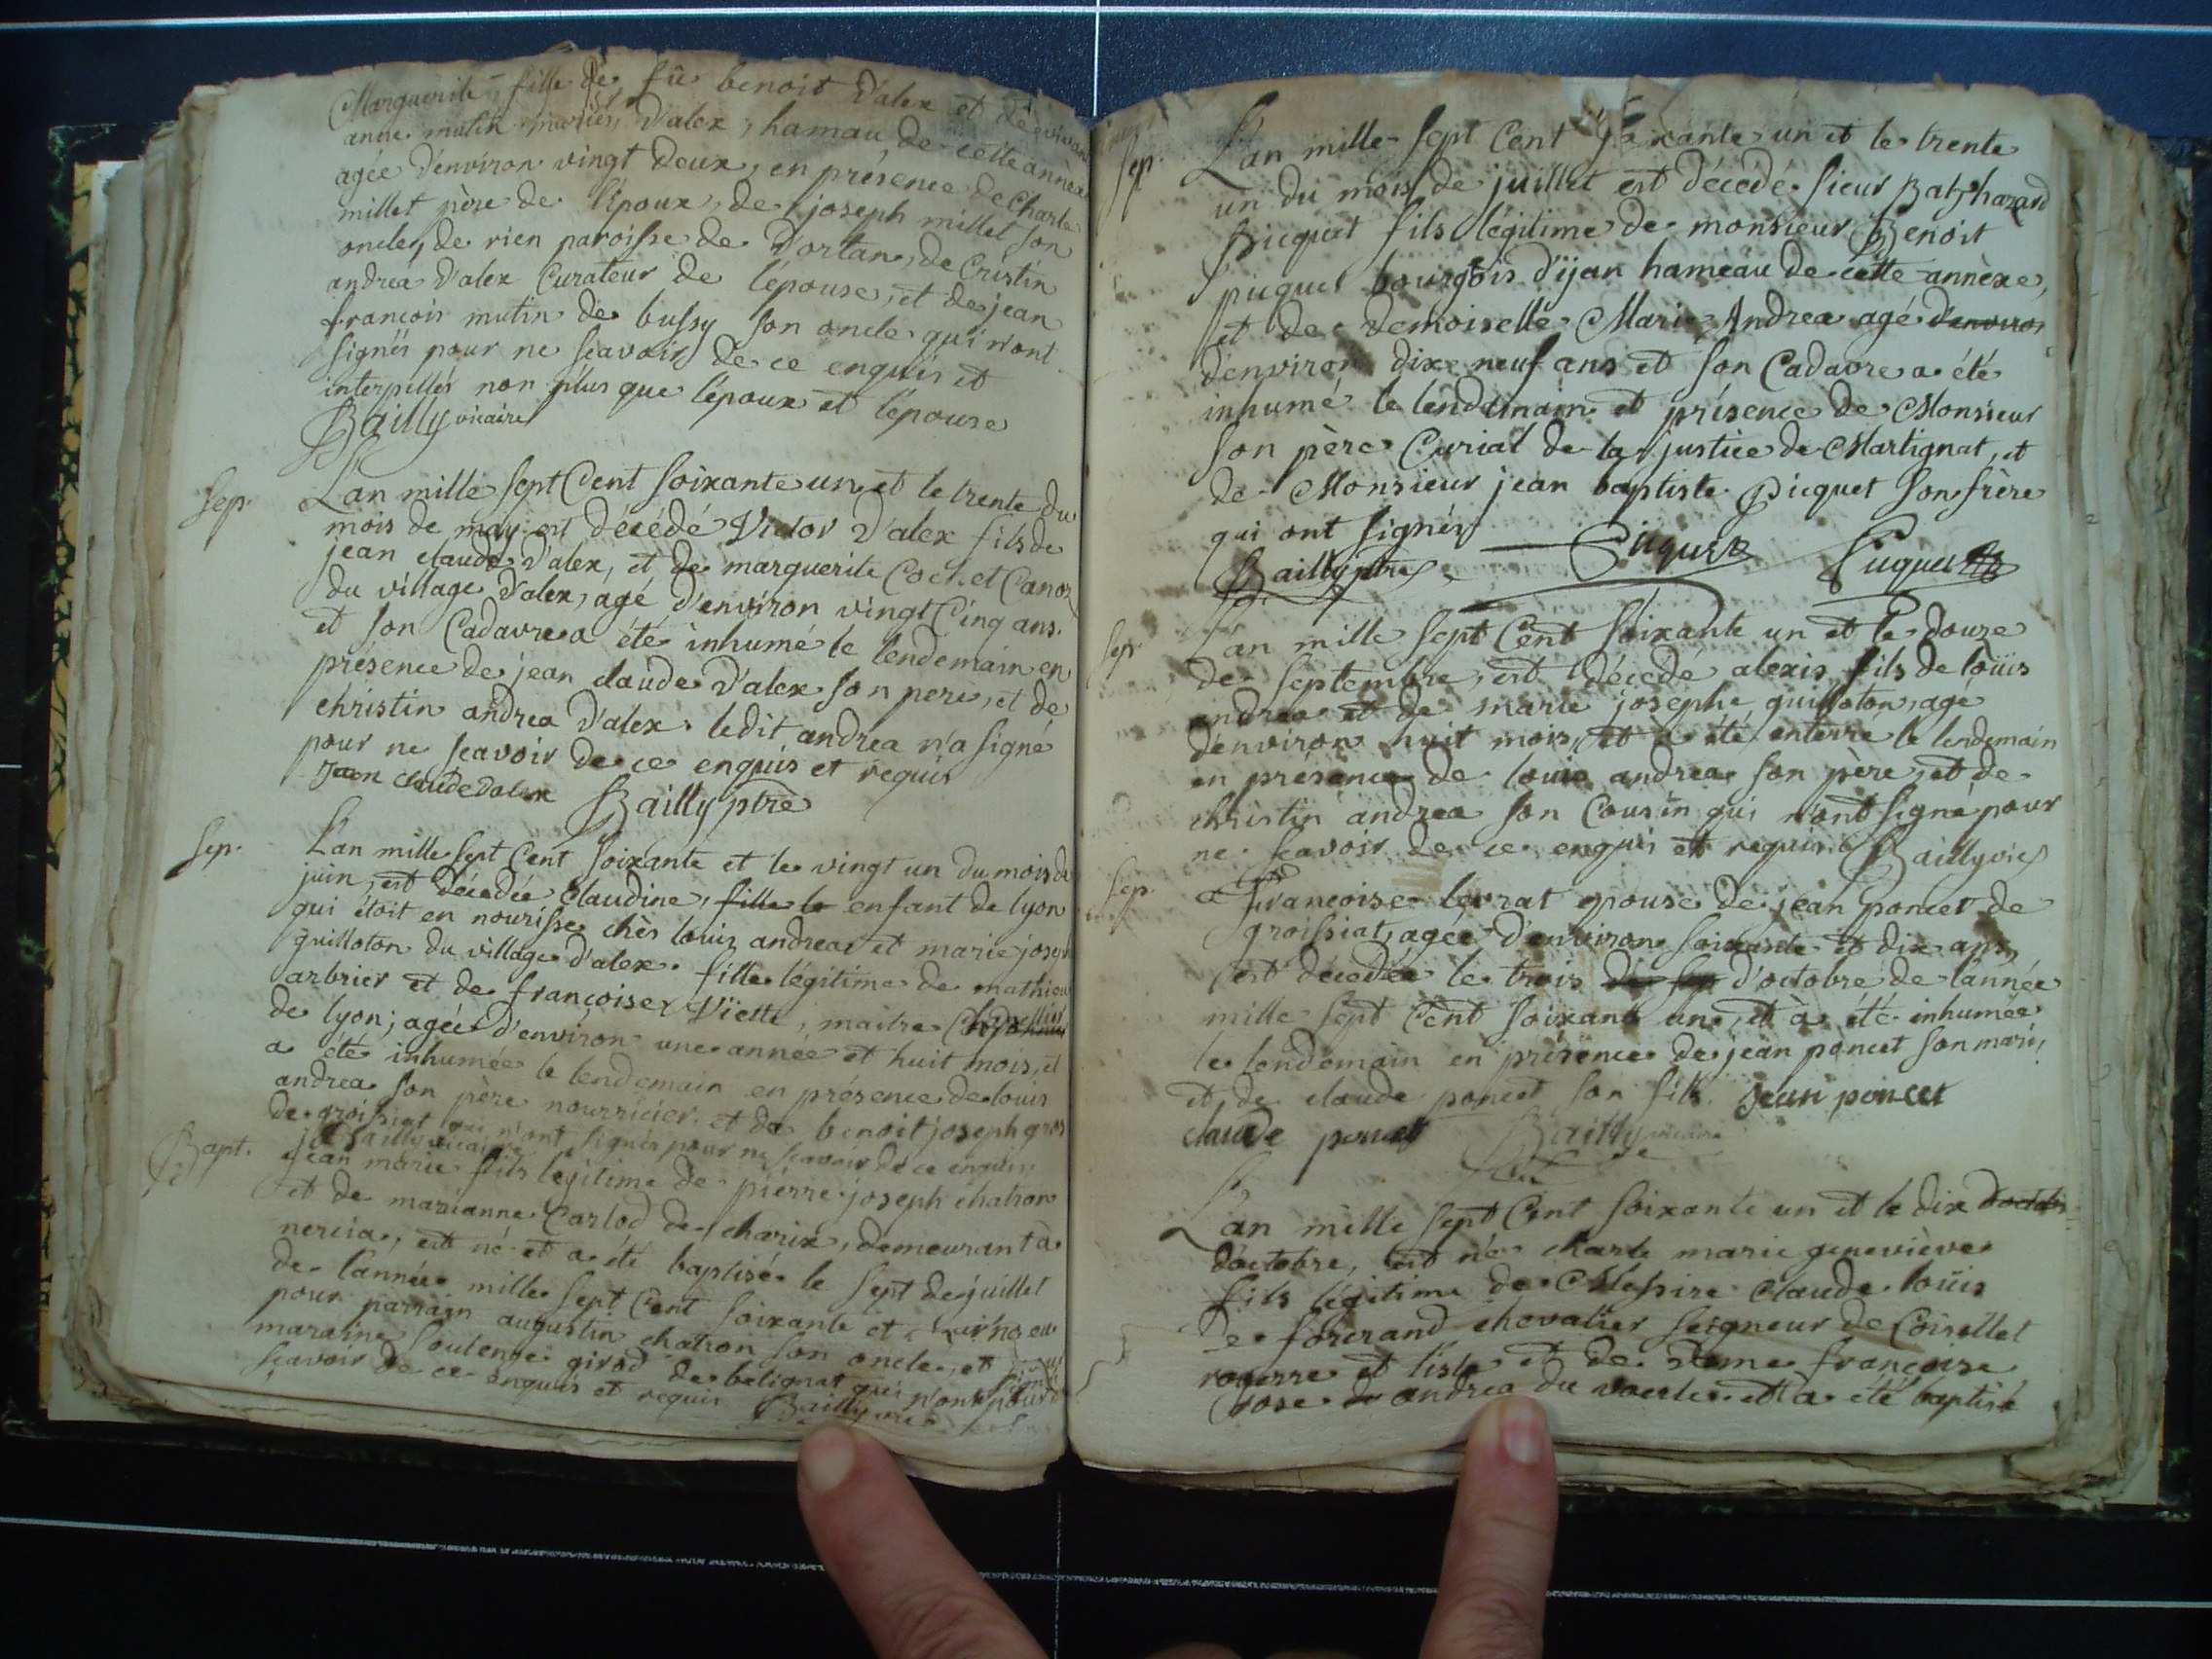 Marguerite fille de fû benoit D'alex et de
anne mutin mariés, D'alex, hamau de cette annèxe
agée D'environ vingt Deux, en présence de Charle
millet père de l'époux, de joseph millet son
oncle, de rien paroisse de Dortan, de Cristin
andrea D'alex Curateur de l'épouse, et de jean
françois mutin de bussy son oncle qui n'ont
signés pour ne sçavoir de ce enquis et
interpellés non plus que l'époux et l'épouse
Bailly vicaire
Sep. L'an mille sept Cent soixante un et le trente du
mois de may est décédé Victor D'alex fils de
jean claude D'alex, et de marguerite Cochet Canoz
du village D'alex, agé d'environ vingt Cinq ans.
et son Cadavre a été inhumé le lendemain en
présence de jean claude D'alex son pere, et de
christin andrea D'alex. ledit andrea n'a signé
pour ne sçavoir de ce enquis et requis
Jean claude Dalex Bailly ptre
Sep. L'an mille sept Cent soixante et le vingt un du mois de
juin, est décedée Claudine, fille le enfant de lyon
qui étoit en nourisse chès louis andrea et marie joseph
guilloton du village d'alex. fille légitime de mathieu
arbrier et de françoise Viette, maitre
de lyon; agée d'environ une année et huit mois, et
a été inhumée le lendemain en présence de louis
andrea son père nourricier et de benoit joseph gros
de groissiat qui n'ont signés pour ne sçavoir de ce enquis
Bailly vicaire
Bapt. jean marie fils légitime de pierre joseph chatron
et de marianne Carlod de charix, demeurant à
nercia, est né et a été baptisé le sept de juillet
de l'année mille sept Cent soixante et un eu
pour parrain augustin chatron son oncle, et pour
maraine girod de belignat qui n'ont signé pour
sçavoir de ce enquis et requis Bailly
Sep. L'an mille sept Cent soixante un et le trente
un du mois de juillet est décédé sieur Balthazard
Picquet fils légitime de monsieur Benoit
piquet bourgois d'ijean hameau de cette annèxe,
et de Demoiselle Marie Andrea agé d'environ
d'environ dixe neuf ans et son Cadavre a été
inhumé le lendemain et présence de Monsieur
son père Curial de la justice de Martignat, et
de Monsieur jean baptiste Picquet son frère
qui ont signés
Bailly ptre Piquet Piquet
Sep. L'an mille sept Cent soixante un et le douze
de septembre, est décedé alexis fils de loüis
andrea et de marie josephe guilloton, agé
d'environ huit mois, et a été enterré le lendemain
en présence de louis andrea son père, et de
christin andrea son Cousin qui n'ont signé pour
ne sçavoir de ce enquis et requis Bailly vic
Sep. françoise levrat epouse de jean poncet de
groissiat, agée d'environ soixante et dix ans,
est décedée le trois de sep d'octobre de l'année
mille sept Cent soixante un, et à été inhumée
le lendemain en présence de jean poncet son mari,
et de claude poncet son fils. Jean poncet
claude poncet Bailly vicaire
L'an mille sept Cent soixante un et le dix d'octob
d'octobre, est né charle marie geneviève
fils légitime de Messire Claude loüis
de forcrand chevalier seigneur de Coisellet
et l'isle et de Dame françoise
rose de andrea du et a été baptisé